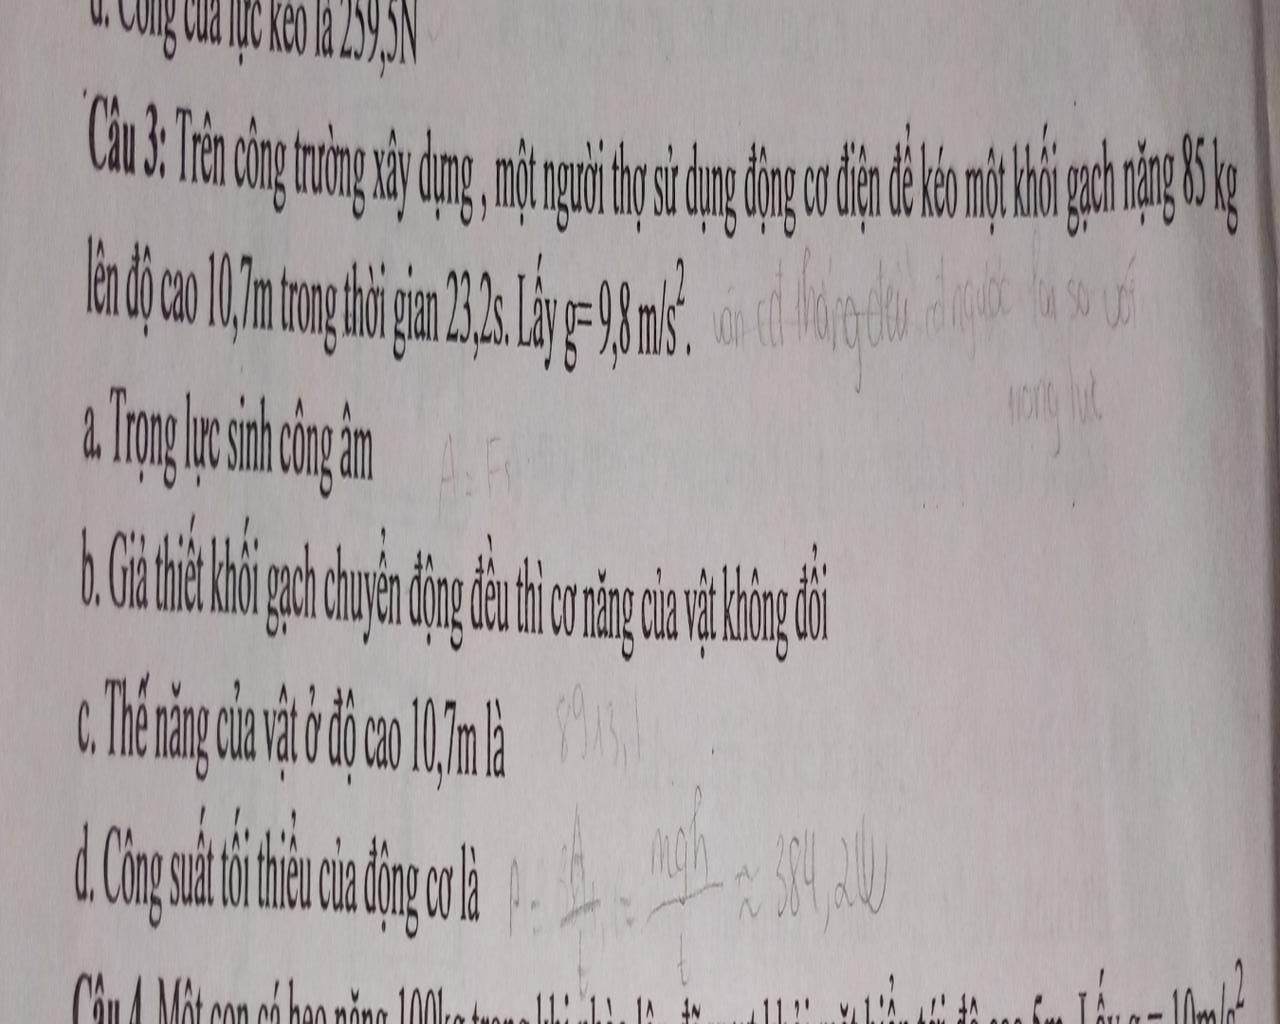 d. Công của lực kéo là 259,5N
Câu 3: Trên công trường xây dựng , một người thợ sử dụng động cơ điện để kéo một khối gạch nặng 85 kg
lên độ cao 10,7m trong thời gian 23,2s. Lấy g= 9,8 m/s². thẳng đều ngược lại so với
trọng lực
a. Trọng lực sinh công âm
A = Fs
b. Giả thiết khối gạch chuyển động đều thì cơ năng của vật không đổi
c. Thế năng của vật ở độ cao 10,7m là 8913,1
d. Công suất tối thiểu của động cơ là P = A/t = mgh/t ≈ 384,2W
Câu 4. Một con cá heo nặng 100kg